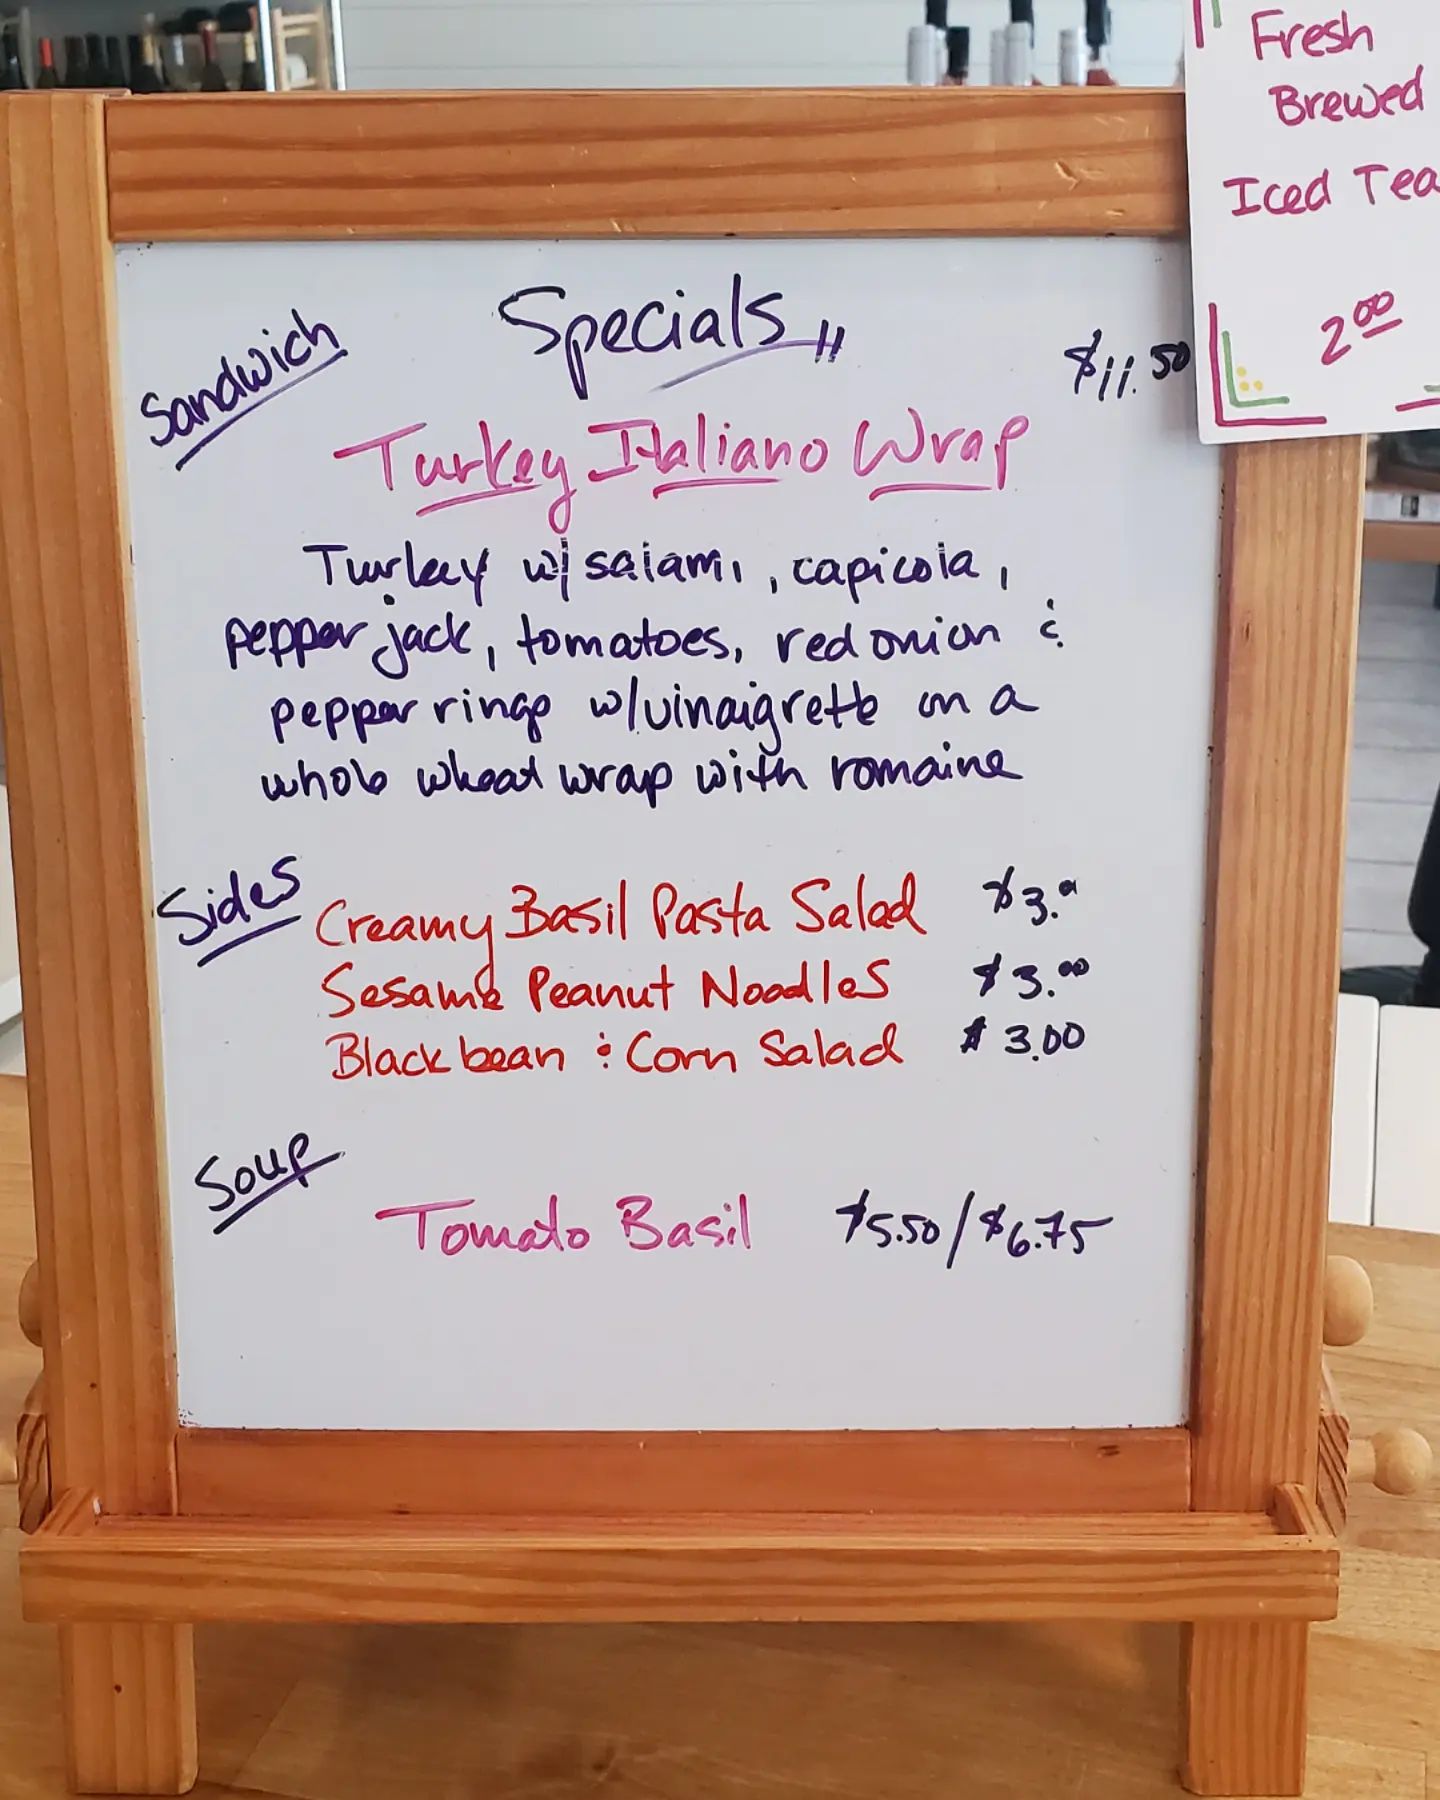 Specials
Sandwich
$11.50
Turkey Italiano Wrap
Turkey w/ salami, capicola,
pepper jack, tomatoes, red onion &
pepper rings w/vinaigrette on a
whole wheat wrap with romaine
Sides
Creamy Basil Pasta Salad $3.00
Sesame Peanut Noodles $3.00
Black bean & Corn Salad $3.00
Soup
Tomato Basil $5.50/$6.75
Fresh
Brewed
Iced Tea
2.00